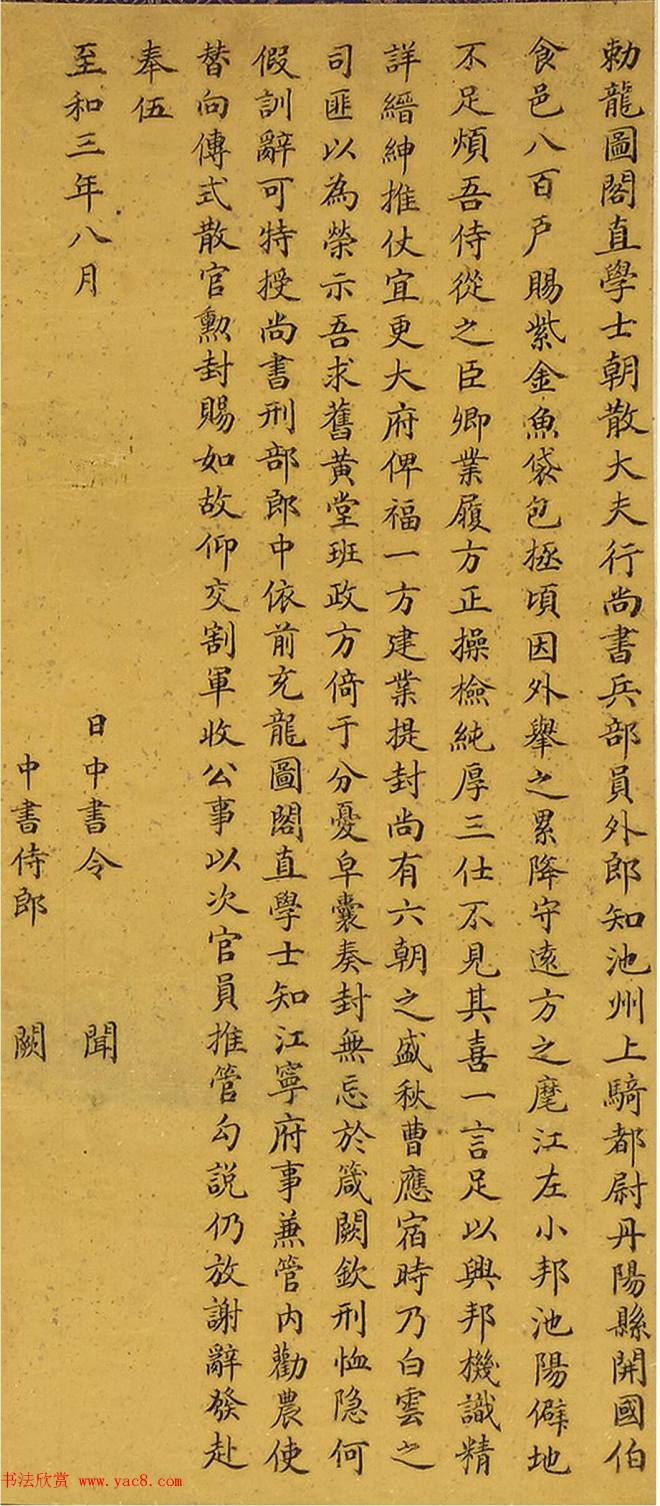 勅龍圖閣直學士朝散大夫行尚書兵部員外郎知池州上騎都尉丹陽縣開國伯
食邑八百戶賜紫金魚袋包拯頃因外舉之累降守遠方之麾江左小邦池陽僻地
不足煩吾侍從之臣卿業履方正操檢純厚三仕不見其喜一言足以興邦機識精
詳縉紳推仗宜更大府俾福一方建業提封尚有六朝之盛秋曹應宿時乃白雲之
司匪以為榮示吾求舊黃堂班政方倚于分憂皁囊奏封無忘於箴闕欽刑恤隐何
假訓辭可特授尚書刑部郎中依前充龍圖閣直學士知江寧府事兼管內勸農使
替向傳式散官勳封賜如故仰交割軍收公事以次官員推管勾説仍放謝辭發赴
奉伍
至和三年八月
日中書令 聞
中書侍郎 闕
书法欣赏 www.yac8.com